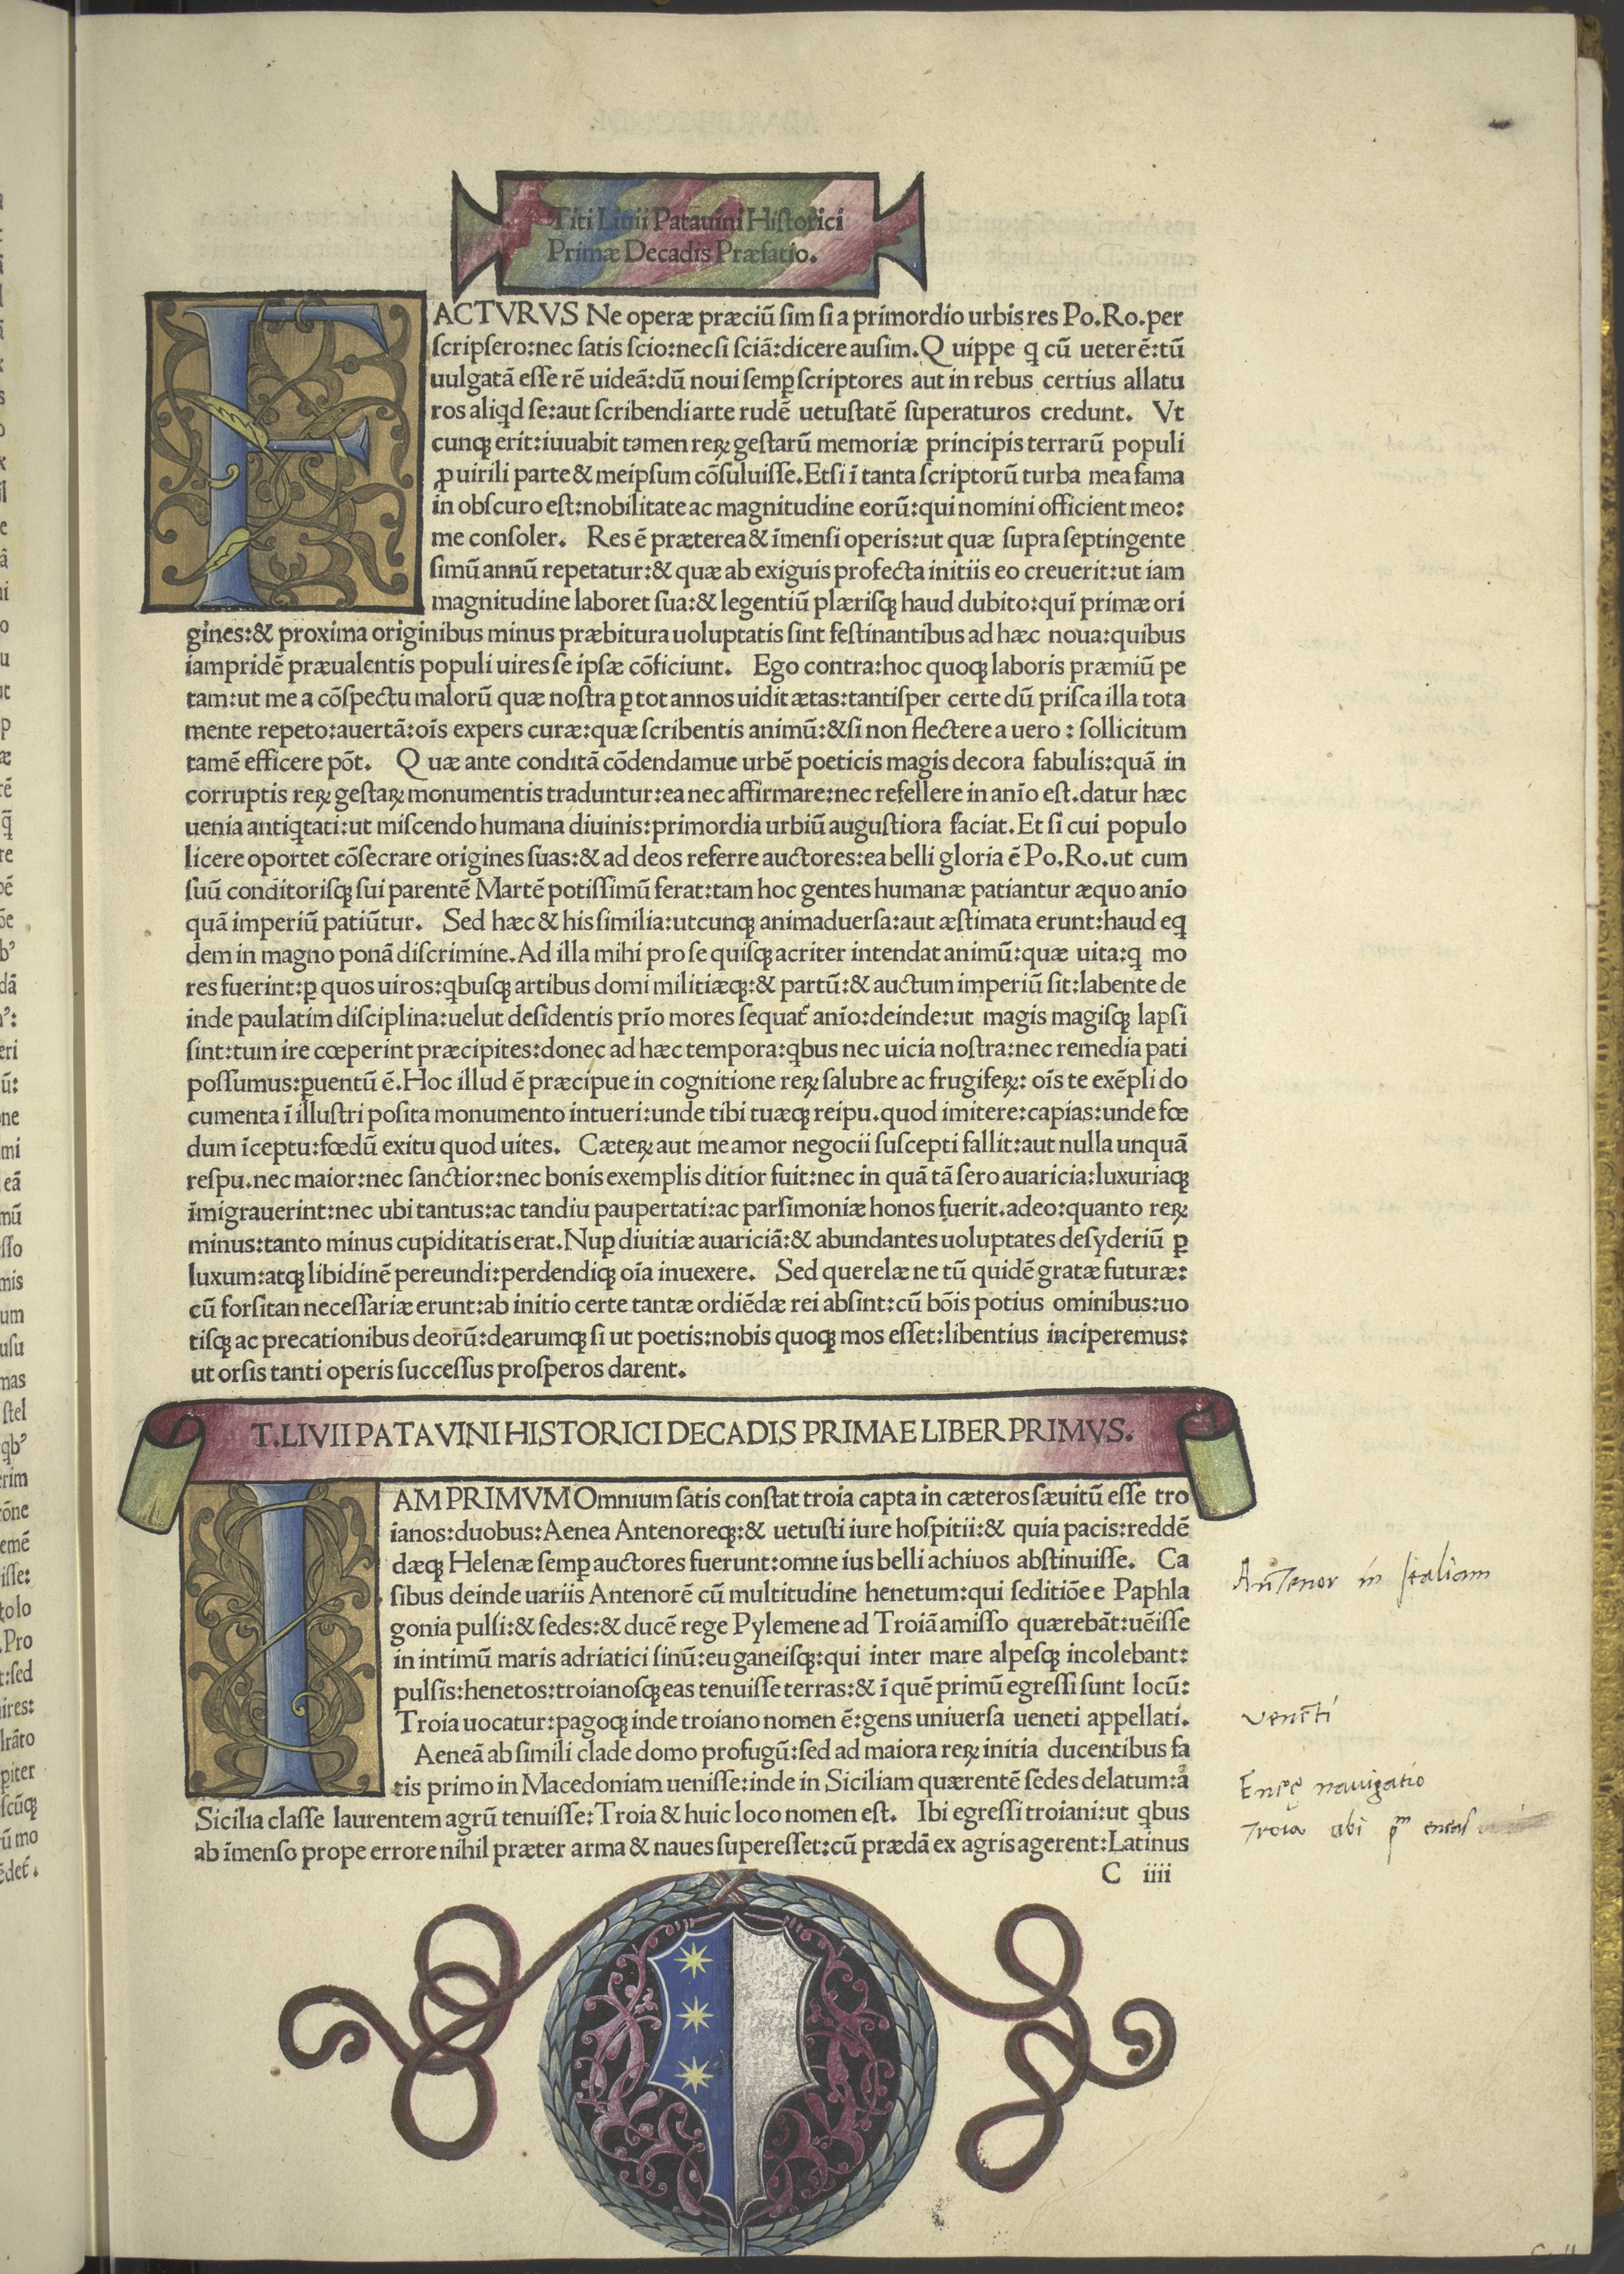 Titi Liuii Patauini Historici
Primæ Decadis Præfatio.
FACTVRVS Ne operæ præciũ sim si a primordio urbis res Po.Ro.per
scripsero:nec satis scio:nec si sciã:dicere ausim.Quippe ꝗ cũ ueterẽ:tũ
uulgatã esse rẽ uideã:dũ noui semꝑ scriptores aut in rebus certius allatu
ros aliꝗd se:aut scribendi arte rudẽ uetustatẽ superaturos credunt. Vt
cunqꝫ erit:iuuabit tamen reꝝ gestarũ memoriæ principis terrarũ populi
ꝓ uirili parte & meipsum cõsuluisse.Etsi ĩ tanta scriptorũ turba mea fama
in obscuro est:nobilitate ac magnitudine eorũ:qui nomini officient meo:
me consoler. Res ẽ præterea & ĩmensi operis:ut quæ supra septingente
simũ annũ repetatur:& quæ ab exiguis profecta initiis eo creuerit:ut iam
magnitudine laboret sua:& legentiũ plærisqꝫ haud dubito:quĩ primæ ori
gines:& proxima originibus minus præbitura uoluptatis sint festinantibus ad hæc noua:quibus
iampridẽ præualentis populi uires se ipsæ cõficiunt. Ego contra:hoc quoqꝫ laboris præmiũ pe
tam:ut me a cõspectu malorũ quæ nostra ꝑ tot annos uidit ætas:tantisper certe dũ prisca illa tota
mente repeto:auertã:oĩs expers curæ:quæ scribentis animũ:& si non flectere a uero : sollicitum
tamẽ efficere põt. Quæ ante conditã cõdendamue urbẽ poeticis magis decora fabulis:quã in
corruptis reꝝ gestaꝝ monumentis traduntur:ea nec affirmare:nec refellere in anĩo est.datur hæc
uenia antiꝗtati:ut miscendo humana diuinis:primordia urbiũ augustiora faciat.Et si cui populo
licere oportet cõsecrare origines suas:& ad deos referre auctores:ea belli gloria ẽ Po.Ro.ut cum
suũ conditorisqꝫ sui parentẽ Martẽ potissimũ ferat:tam hoc gentes humanæ patiantur æquo anĩo
quã imperiũ patiũtur. Sed hæc & his similia:utcunqꝫ animaduersa:aut æstimata erunt:haud eꝗ
dem in magno ponã discrimine.Ad illa mihi pro se quisqꝫ acriter intendat animũ:quæ uita:ꝗ mo
res fuerint:ꝑ quos uiros:ꝗbusqꝫ artibus domi militiæqꝫ:& partũ:& auctum imperiũ sit:labente de
inde paulatim disciplina:uelut desidentis prĩo mores sequat᷑ anĩo:deinde:ut magis magisqꝫ lapsi
sint:tum ire cœperint præcipites:donec ad hæc tempora:ꝗbus nec uicia nostra:nec remedia pati
possumus:ꝑuentũ ẽ.Hoc illud ẽ præcipue in cognitione reꝝ salubre ac frugifeꝝ: oĩs te exẽpli do
cumenta ĩ illustri posita monumento intueri:unde tibi tuæqꝫ reipu.quod imitere:capias:unde fœ
dum ĩceptu:fœdũ exitu quod uites. Cæteꝝ aut me amor negocii suscepti fallit:aut nulla unquã
respu.nec maior:nec sanctior:nec bonis exemplis ditior fuit:nec in quã tã sero auaricia:luxuriaqꝫ
ĩmigrauerint:nec ubi tantus:ac tandiu paupertati:ac parsimoniæ honos fuerit.adeo:quanto reꝝ
minus:tanto minus cupiditatis erat.Nuꝑ diuitiæ auariciã:& abundantes uoluptates desyderiũ ꝑ
luxum:atqꝫ libidinẽ pereundi:perdendiqꝫ oĩa inuexere. Sed querelæ ne tũ quidẽ gratæ futuræ:
cũ forsitan necessariæ erunt:ab initio certe tantæ ordiẽdæ rei absint:cũ bõis potius ominibus:uo
tisqꝫ ac precationibus deorũ:dearumqꝫ si ut poetis:nobis quoqꝫ mos esset:libentius inciperemus:
ut orsis tanti operis successus prosperos darent.
T.LIVII PATAVINI HISTORICI DECADIS PRIMAE LIBER PRIMVS.
IAM PRIMVM Omnium satis constat troia capta in cæteros sæuitũ esse tro
ianos:duobus:Aenea Antenoreqꝫ:& uetusti iure hospitii:& quia pacis:reddẽ
dæqꝫ Helenæ semꝑ auctores fuerunt:omne ius belli achiuos abstinuisse. Ca
sibus deinde uariis Antenorẽ cũ multitudine henetum:qui seditiõe e Paphla
gonia pulsi:& sedes:& ducẽ rege Pylemene ad Troiã amisso quærebãt:uẽisse
in intimũ maris adriatici sinũ:euganeisqꝫ:qui inter mare alpesqꝫ incolebant:
pulsis:henetos:troianosqꝫ eas tenuisse terras:& ĩ quẽ primũ egressi sunt locũ:
Troia uocatur:pagoqꝫ inde troiano nomen ẽ:gens uniuersa ueneti appellati.
Aeneã ab simili clade domo profugũ:sed ad maiora reꝝ initia ducentibus fa
tis primo in Macedoniam uenisse:inde in Siciliam quærentẽ sedes delatum:a
Sicilia classe laurentem agrũ tenuisse:Troia & huic loco nomen est. Ibi egressi troiani:ut ꝗbus
ab ĩmenso prope errore nihil præter arma & naues superesset:cũ prædã ex agris agerent:Latinus
C iiii
Antenor in Italiam
Venēti
Eneę nauigatio
Troia ubi pm eneas